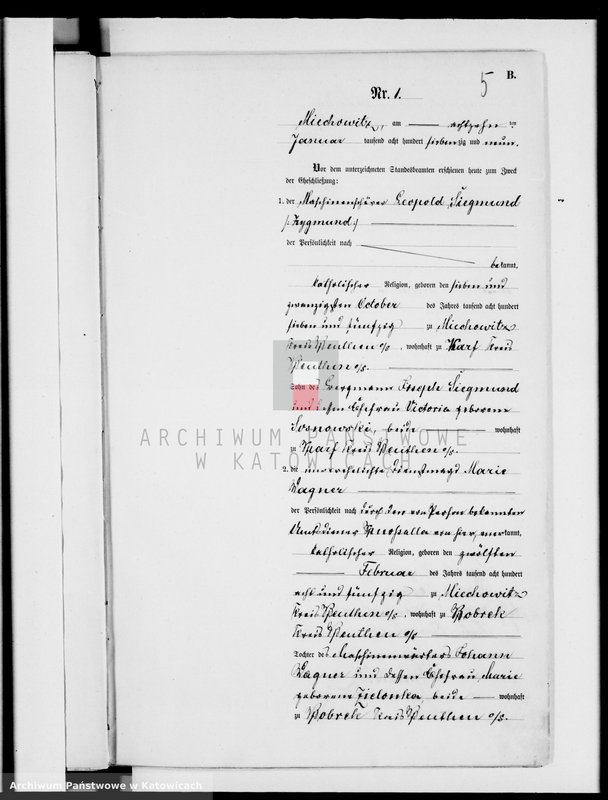 B.
5
Nr. 1.
Miechowitz, am achtzehn ten
Januar tausend acht hundert siebenzig und neun.
Vor dem unterzeichneten Standesbeamten erschienen heute zum Zweck
der Eheschließung:
1. der Maschinenschürer Leopold Siegmund
/: Zygmund :/
der Persönlichkeit nach
bekannt,
katholischer Religion, geboren den sieben und
zwanzigsten October des Jahres tausend acht hundert
sieben und fünfzig zu Miechowitz
Kreis Beuthen o/S, wohnhaft zu Karf Kreis
Beuthen o/S.
Sohn des Bergmann Joseph Siegmund
und dessen Ehefrau Victoria geborene
Sosnowski, beide wohnhaft
zu Karf Kreis Beuthen o/S.
ARCHIWUM PAŃSTWOWE
W KATOWICACH
2. die unverehelichte Dienstmagd Marie
Wagner
der Persönlichkeit nach durch den von Person bekannten
Amtsdiener von hier, anerkannt,
katholischer Religion, geboren den zwölften
Februar des Jahres tausend acht hundert
acht und fünfzig zu Miechowitz
Kreis Beuthen o/S, wohnhaft zu Bobrek
Kreis Beuthen o/S
Tochter des Maschinenwärters Johann
Wagner und dessen Ehefrau Marie
geborene Zielonka, beide wohnhaft
zu Bobrek Kreis Beuthen o/S.
Archiwum Państwowe w Katowicach